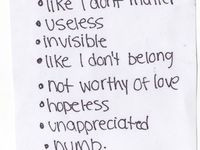 • like I don't matter
• useless
• invisible
• like I don't belong
• not worthy of love
• hopeless
• unappreciated
• numb.